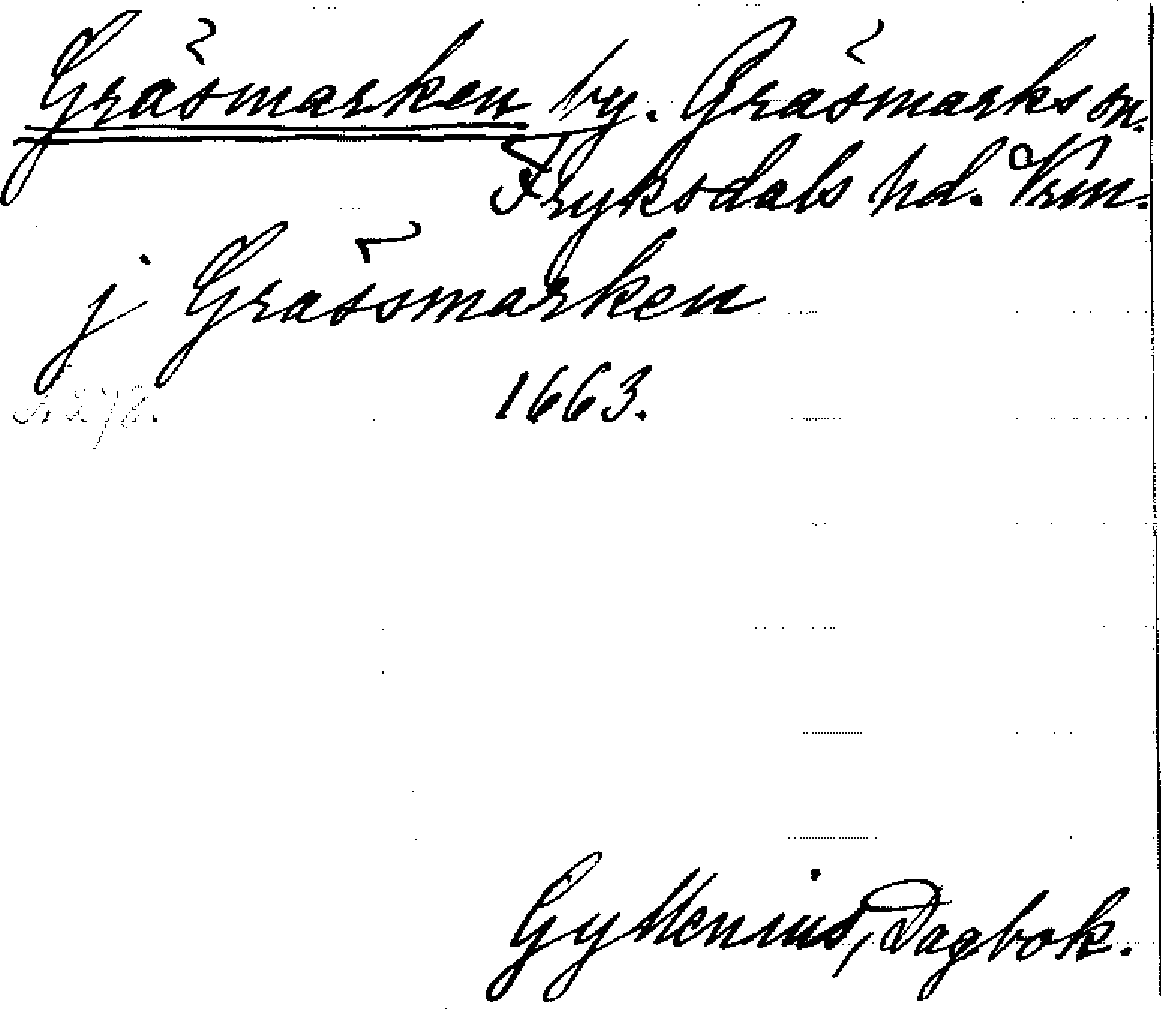 Gräsmarken by. Gräsmarks sn.
Fryksdals hd. Vrm.
j Gräsmarken
1663.
Gyllenius, Dagbok.